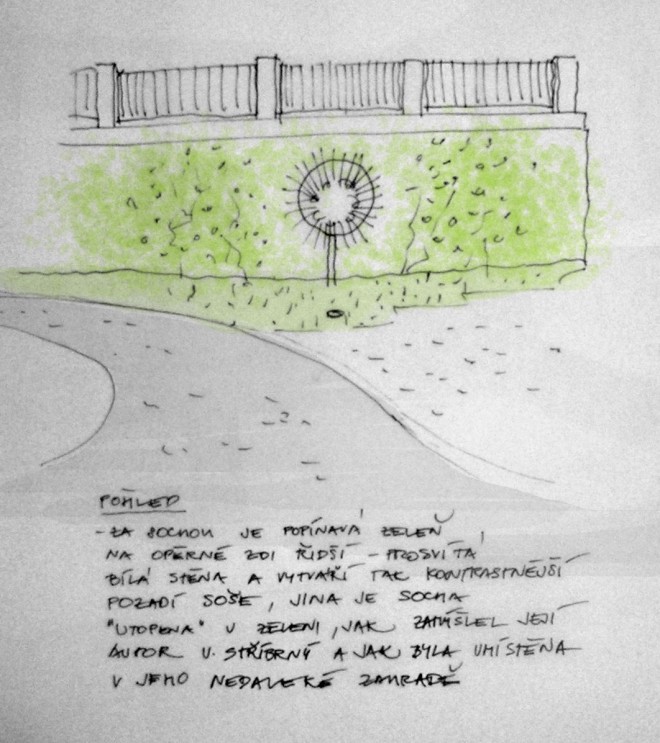 POHLED
- ZA SOCHOU JE POPÍNAVÁ ZELEŇ
NA OPĚRNÉ ZDI ŘIDŠÍ - PROSVÍTÁ
BÍLÁ STĚNA A VYTVÁŘÍ TAK KONTRASTNĚJŠÍ
POZADÍ SOŠE, JINA JE SOCHA
"UTOPENA" V ZELENI, JAK ZAMÝŠLEL JEJÍ
AUTOR V. STŘÍBRNÝ A JAK BYLA UMÍSTĚNA
V JEHO NEDALEKÉ ZAHRADĚ